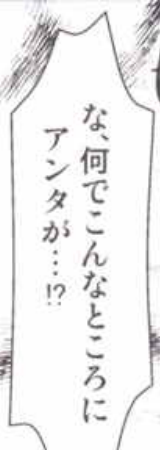 な、何でこんなところに
アンタが…!?